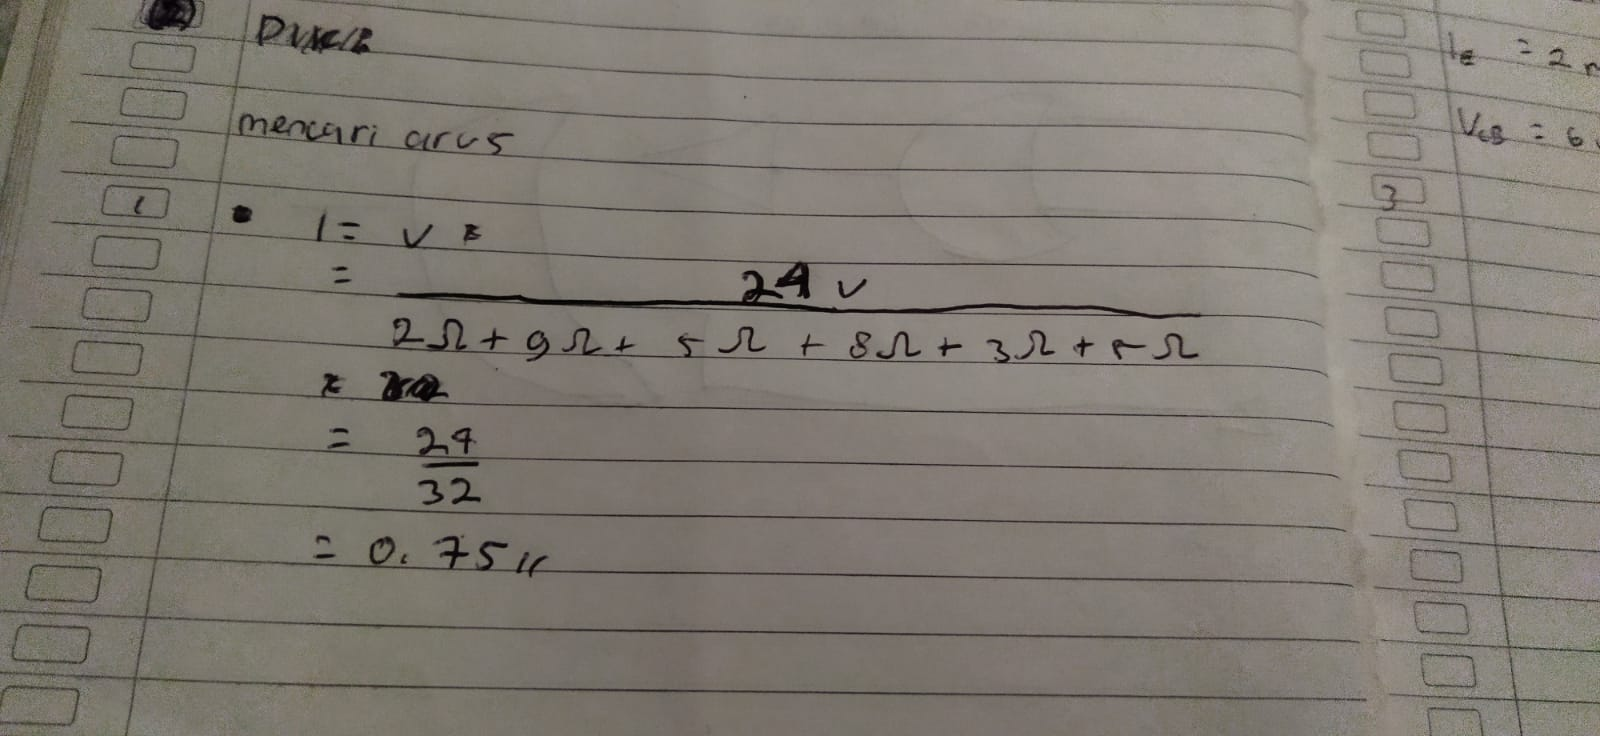 mencari arus
1
I = V
= 24 V
2Ω + 9Ω + 5Ω + 8Ω + 3Ω + 5Ω
= 24
32
= 0.75 //
IE = 2
VCB = 6
3